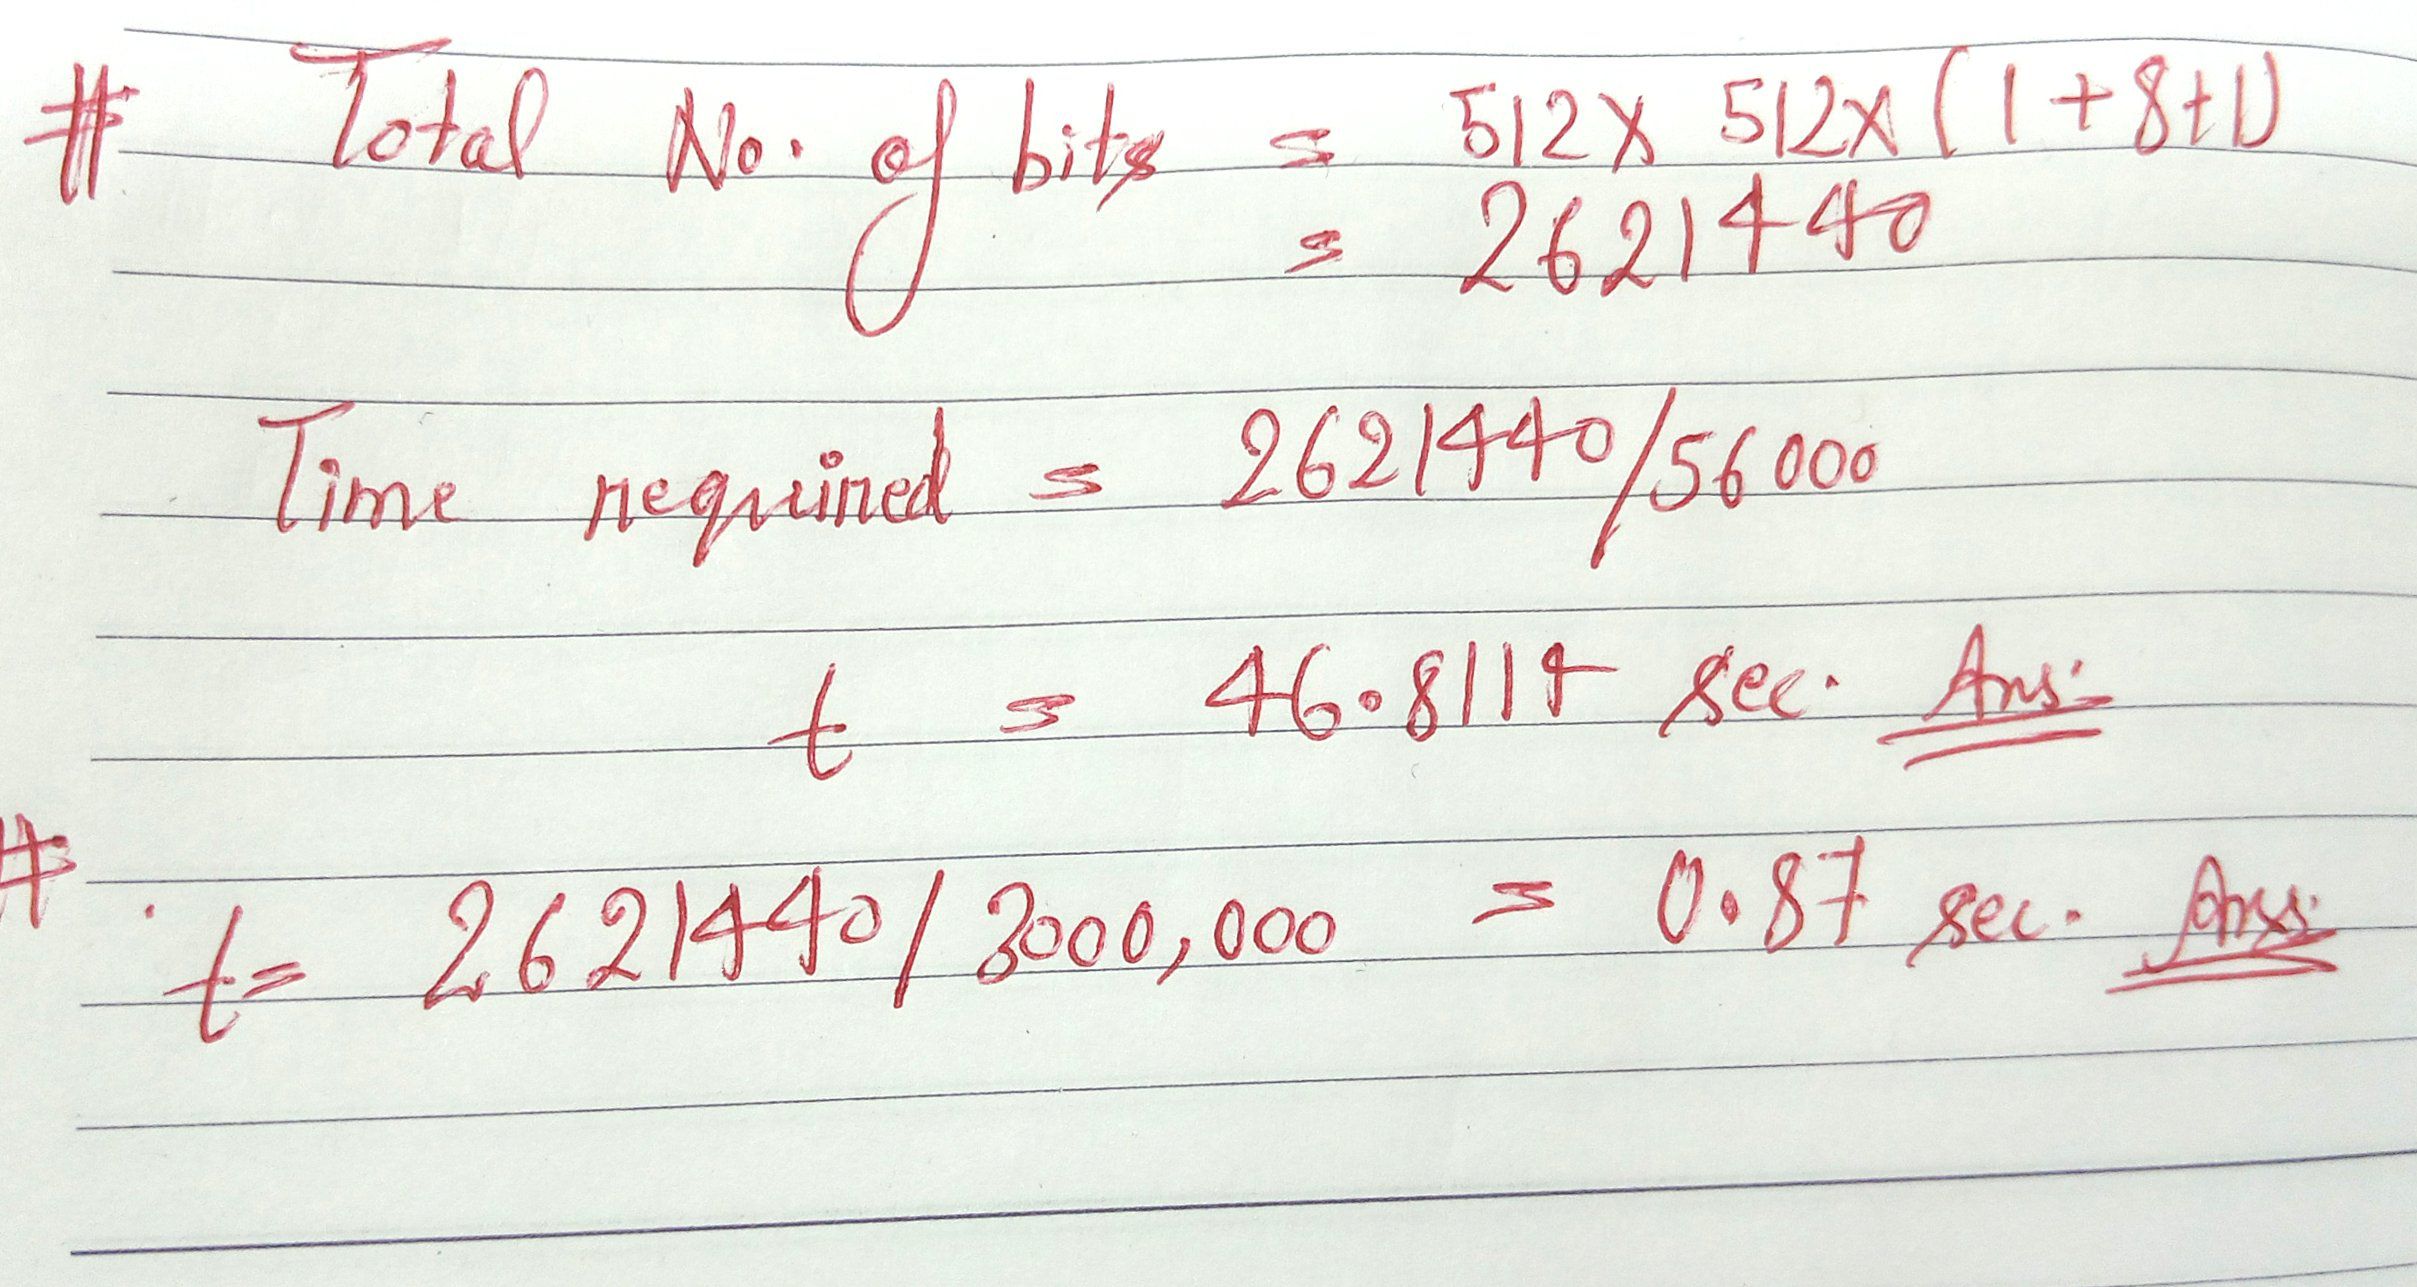 # Total No. of bits = 512 x 512 x (1+8+1)
= 2621440
Time required = 2621440/56000
t = 46.8114 sec. Ans:
# t = 2621440/3000,000 = 0.87 sec. Ans: